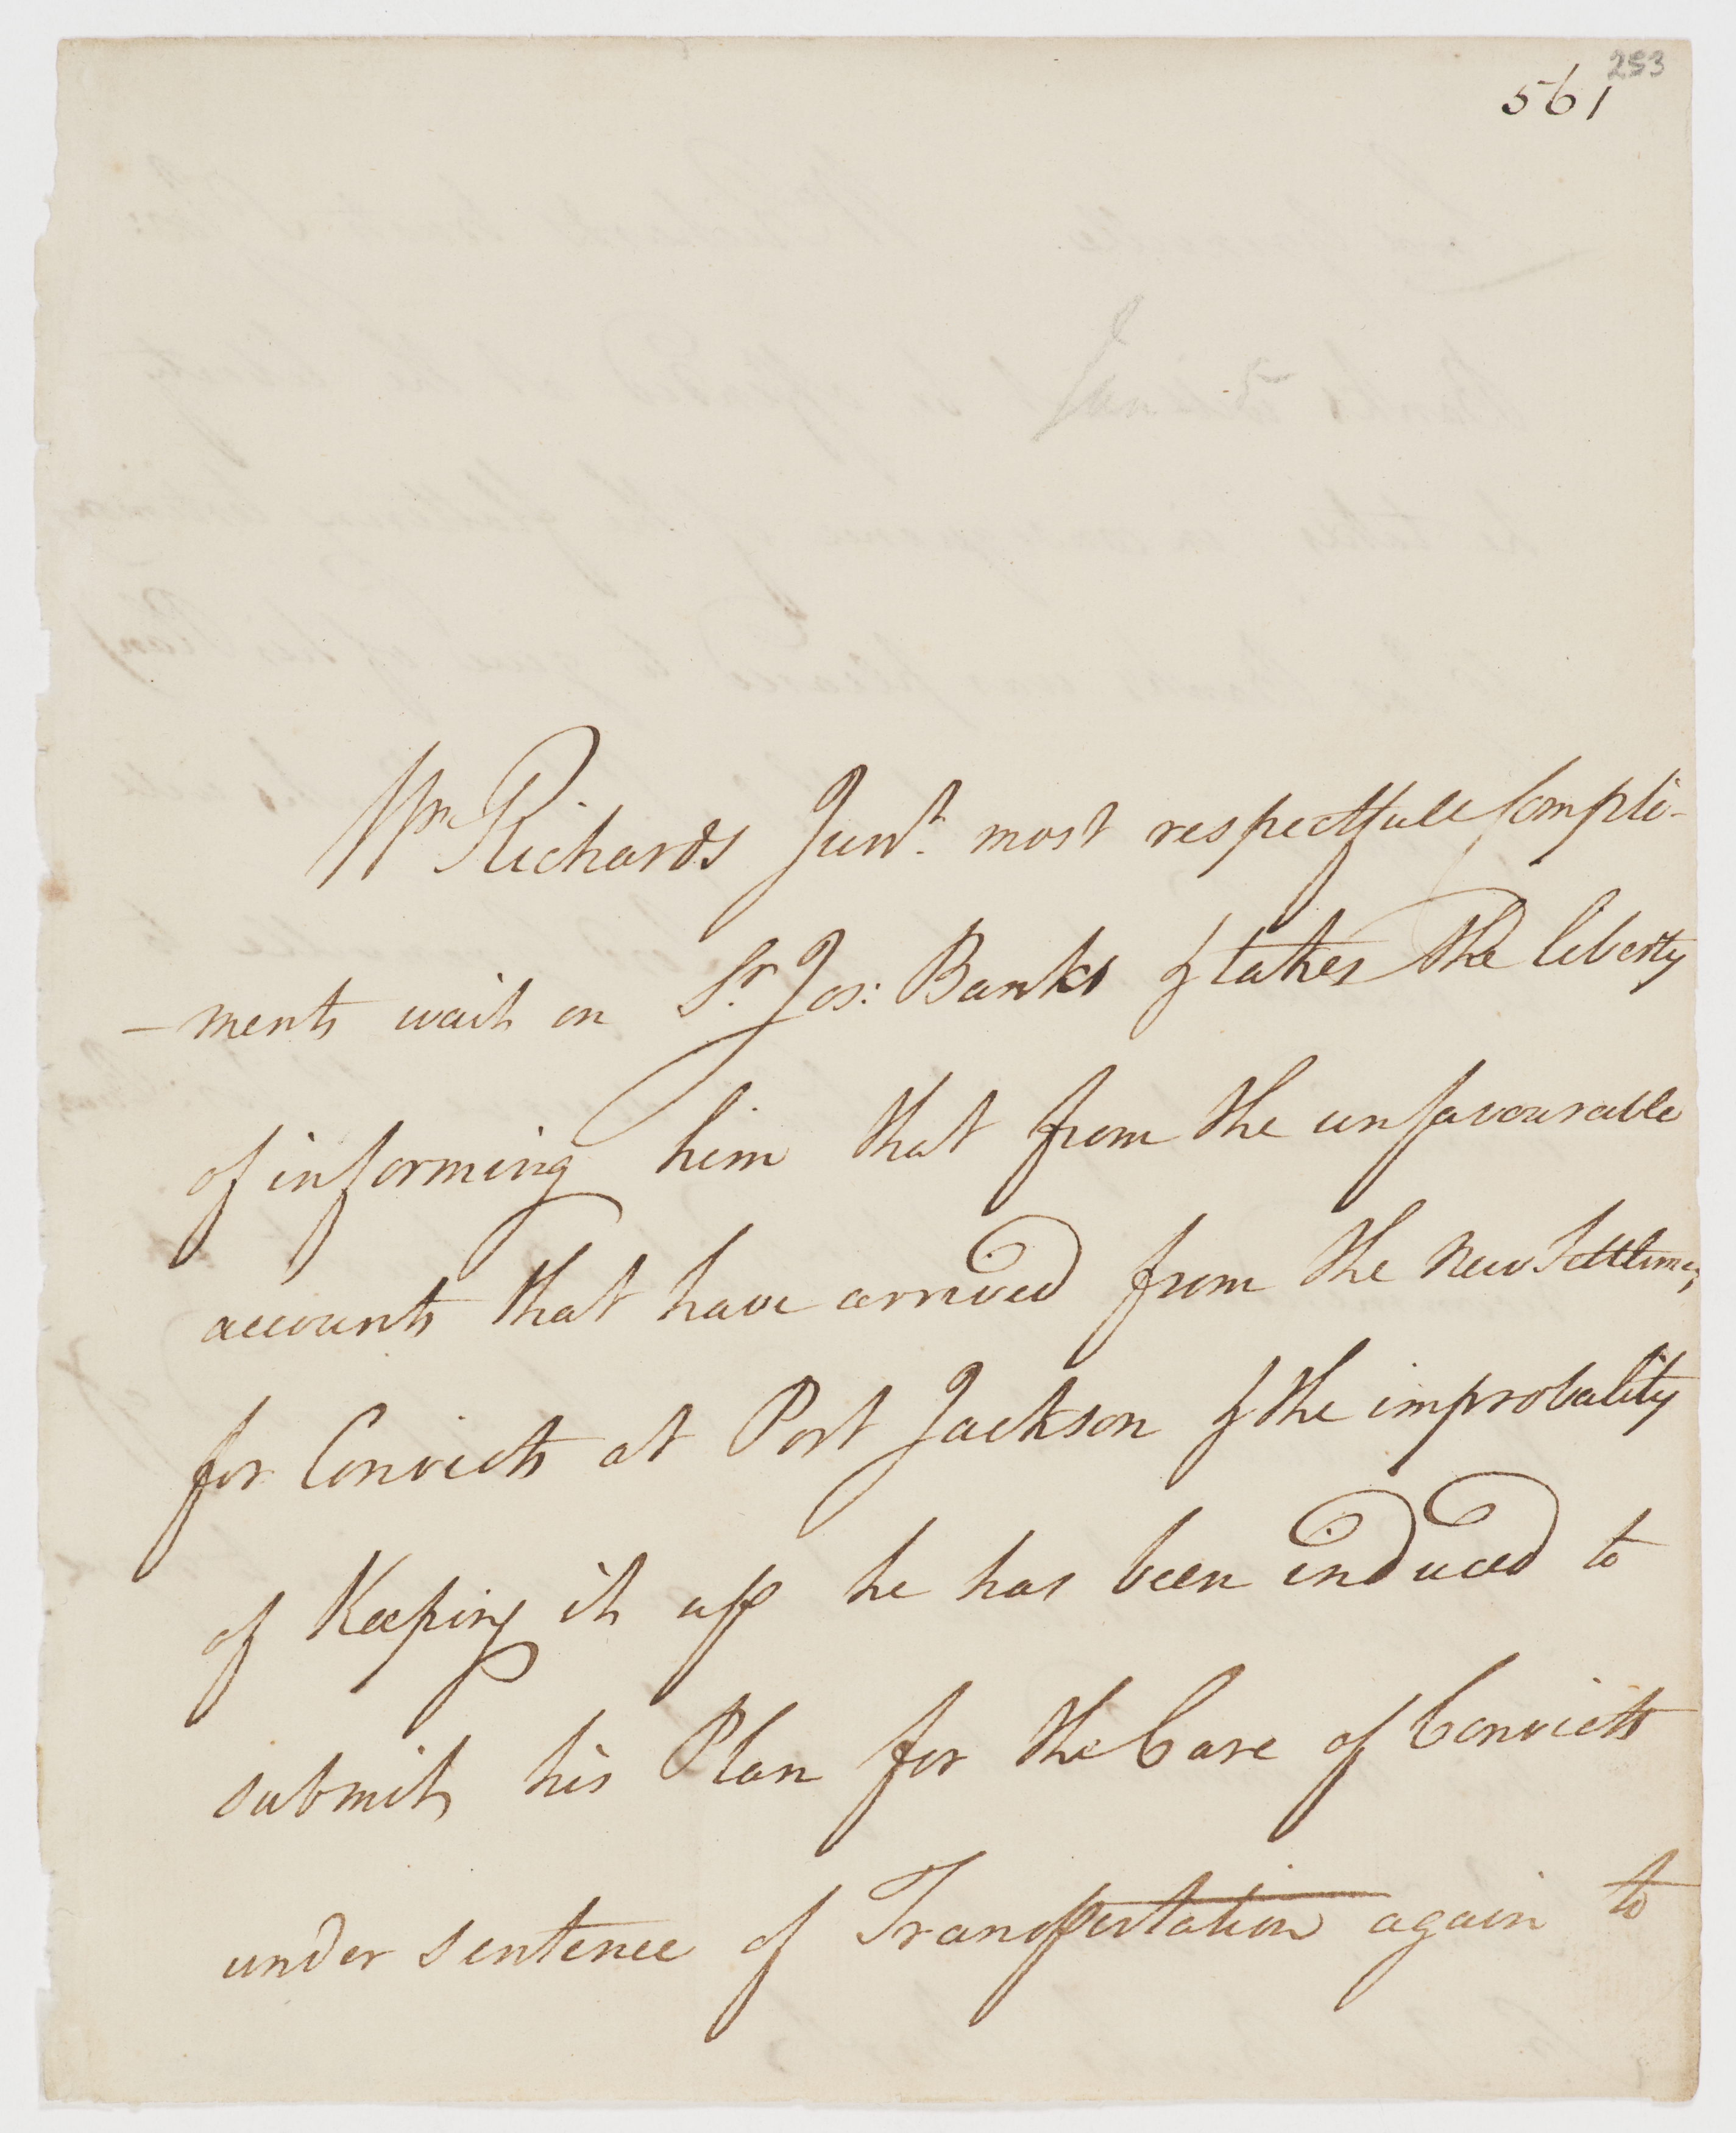 253
561
Jan. 5
Wm Richards Junr. most respectfull Compli-
-ments wait on Sr. Jos: Banks & takes the liberty
of informing him that from the unfavourable
accounts that have arrived from the new Settlemen
for Convicts at Port Jackson & the improbality
of Keeping it up he has been induced to
submit his Plan for the Care of Convicts
under sentence of Transportation again to